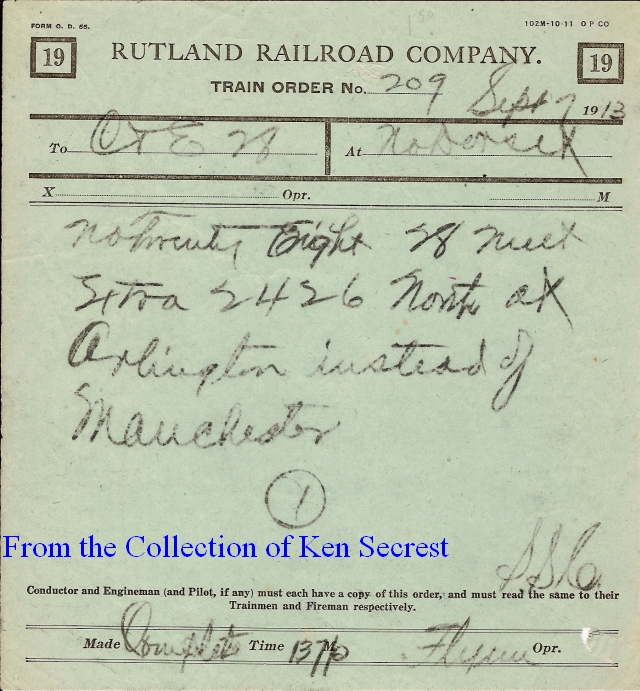 FORM O. D. 55.
102M-10-11 O P CO
19 RUTLAND RAILROAD COMPANY. 19
TRAIN ORDER No. 209
Sept 7 1913
To C & E 28 At No Dorset
X Opr. M
No Twenty Eight 28 meet
Extra 2426 North at
Arlington instead of
Manchester
1
From the Collection of Ken Secrest
Conductor and Engineman (and Pilot, if any) must each have a copy of this order, and must read the same to their
Trainmen and Fireman respectively.
Made Complete Time M. Flynn Opr.